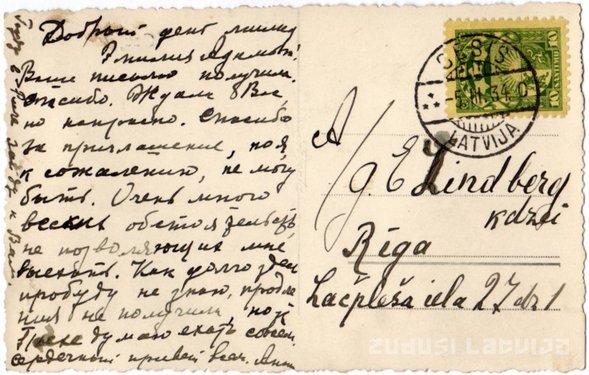 Добрый день милая
Эмилия Адамовна!
Ваше письмо получил.
Спасибо. Ждали Вас
но напрасно. Спасибо
за приглашение, но я,
к сожалению, не могу
быть. Очень много
веских обстоятельств
не позволяющих мне
выехать. Как долго здесь
пробуду не знаю, продле
ния не получил, но я
думаю ехать совсем.
сердечный привет всем.
CĒSIS
34
LATVIJA
10 10
A/g. E. Lindberg
kdzei
Rīga
Lāčplēša iela 27 dz 1
zudusi latvija